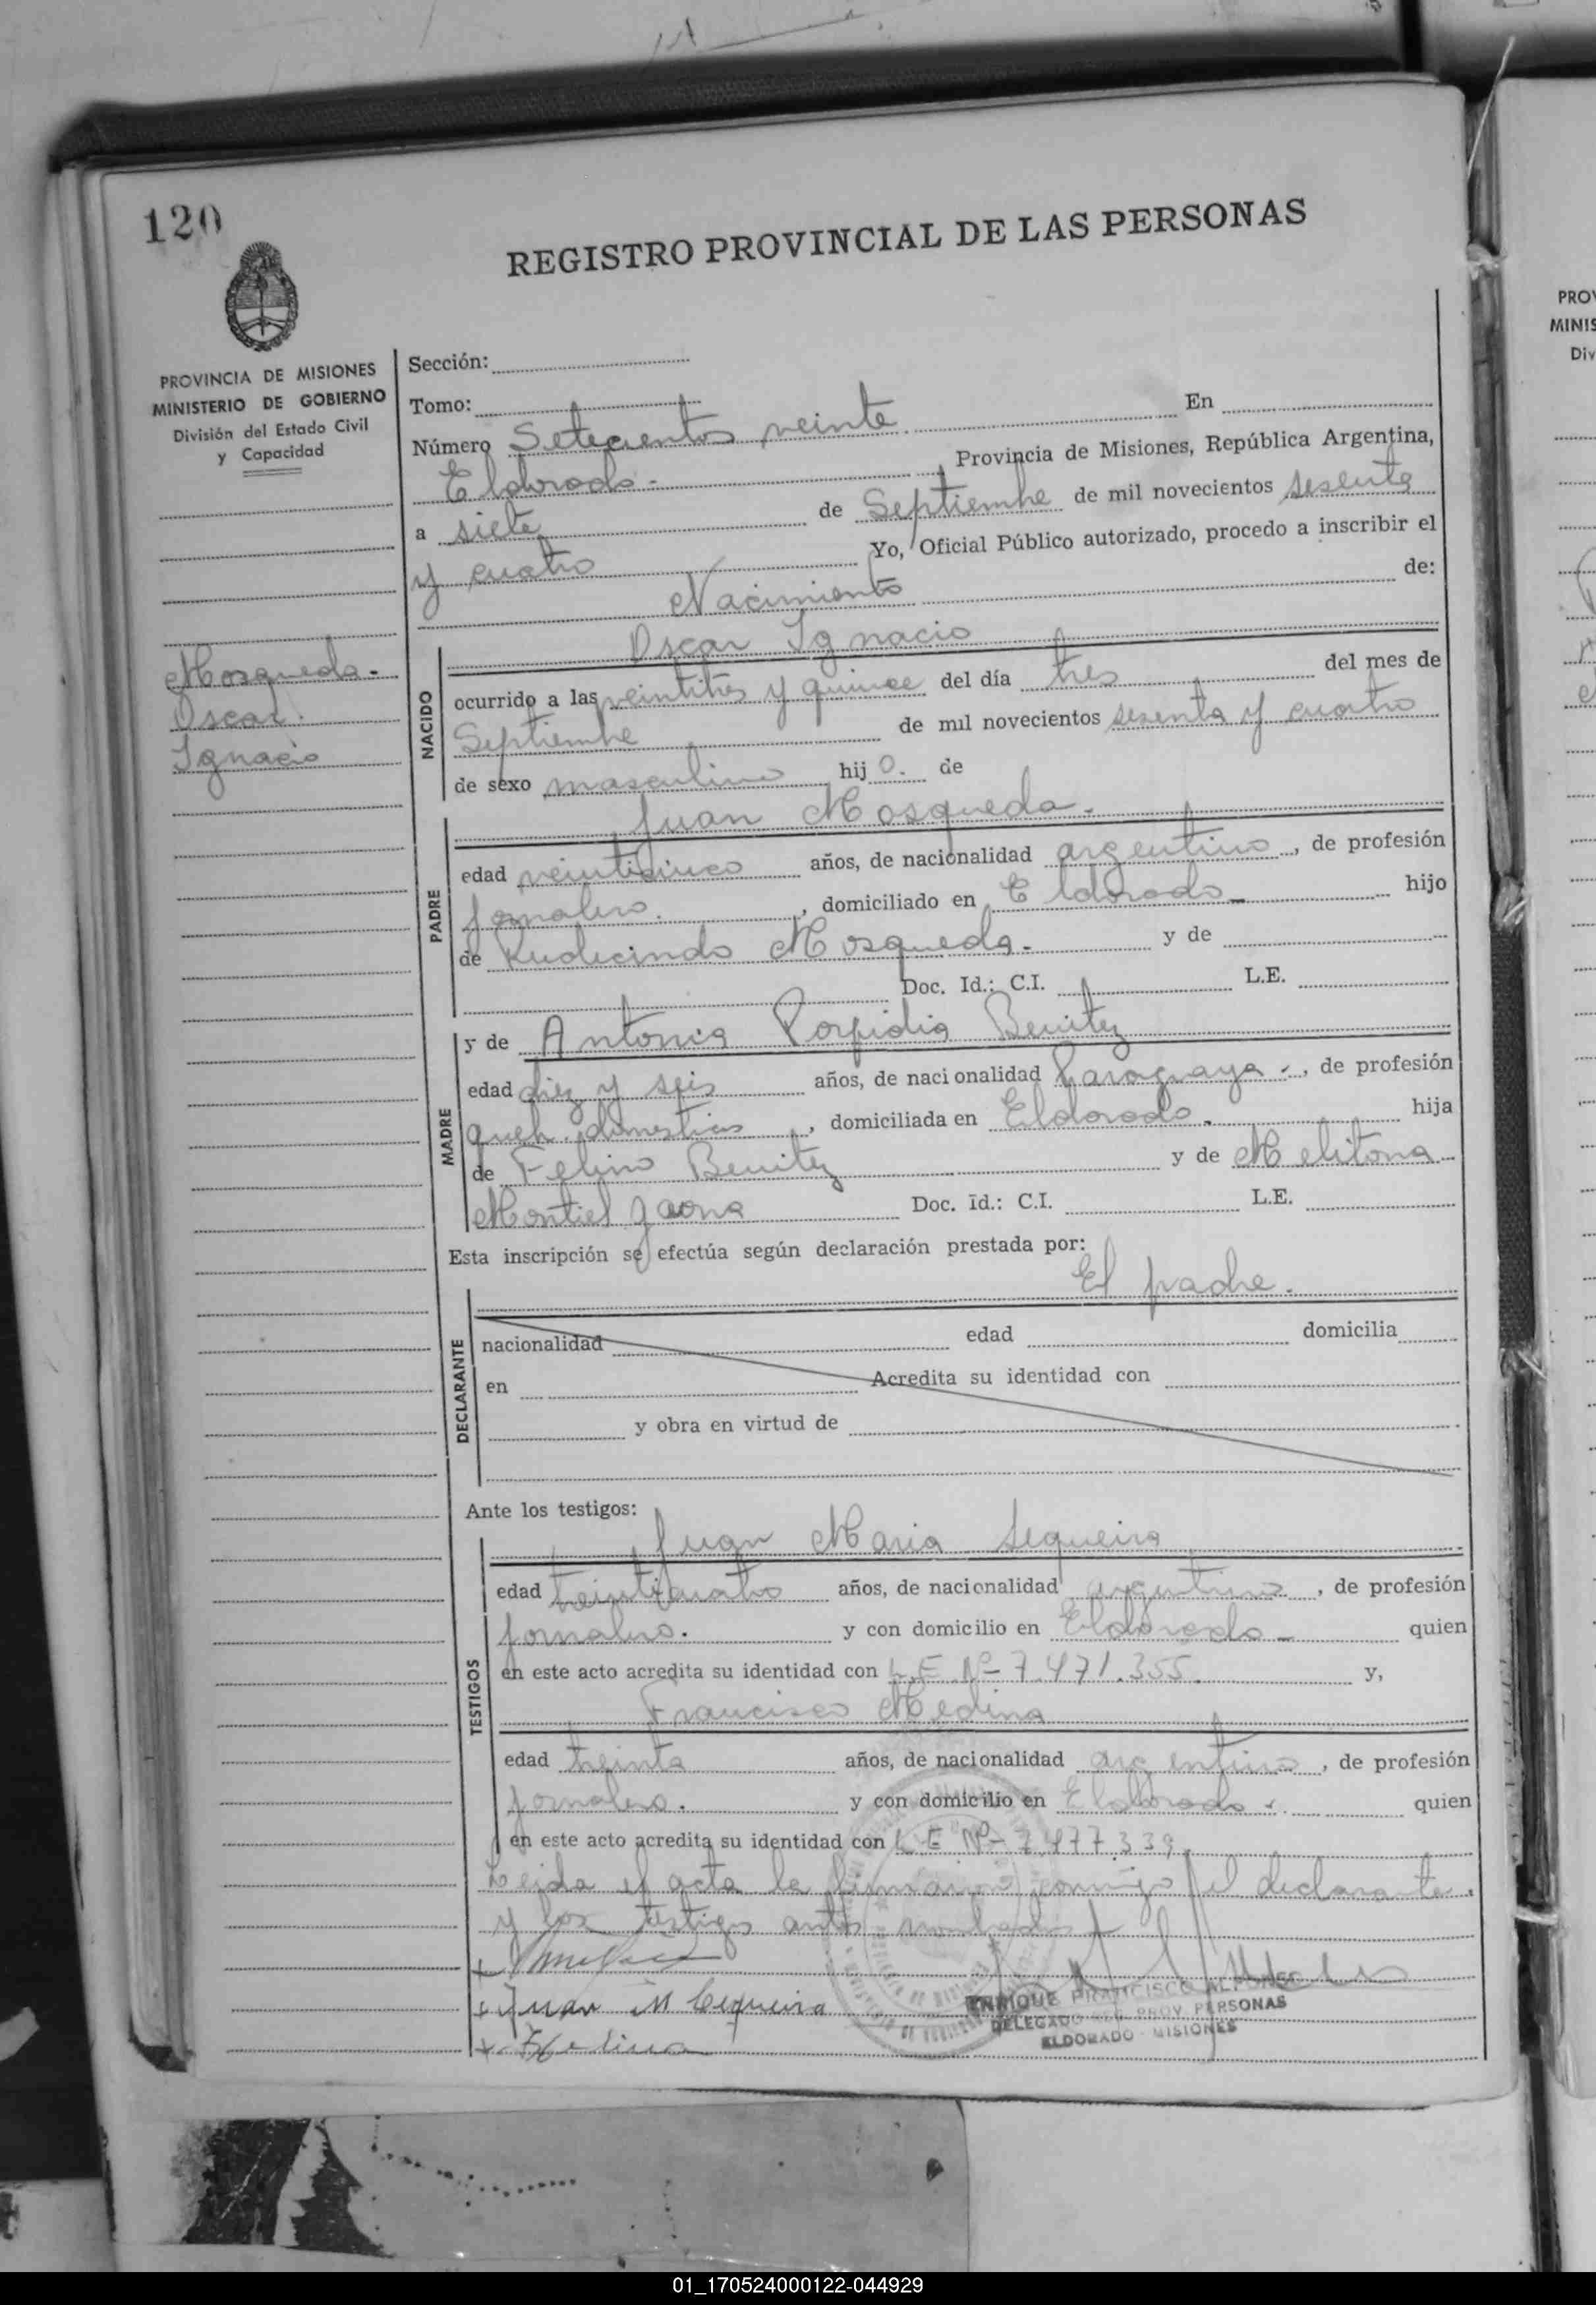 120
REGISTRO PROVINCIAL DE LAS PERSONAS
PROVINCIA DE MISIONES
MINISTERIO DE GOBIERNO
División del Estado Civil
y Capacidad
Mosqueda.
Oscar
Ignacio
Sección:
Tomo:
Número Setecientos veinte En
Eldorado. , Provincia de Misiones, República Argentina,
a siete de Septiembre de mil novecientos sesenta
y cuatro Yo, Oficial Público autorizado, procedo a inscribir el
Nacimiento de:
Oscar Ignacio
NACIDO
ocurrido a las veintitres y quince del día tres del mes de
Septiembre de mil novecientos sesenta y cuatro
de sexo masculino hijo. de
Juan Mosqueda.
PADRE
edad veinticinco años, de nacionalidad argentino, de profesión
jornalero. , domiciliado en Eldorado hijo
de Rudecindo Mosqueda. y de
Doc. Id.: C.I. L.E.
y de Antonia Porfidia Benitez
MADRE
edad diez y seis años, de nacionalidad Paraguaya, de profesión
queh. domesticos, domiciliada en Eldorado. hija
de Felino Benitez y de Melitona
Montiel Gaona Doc. Id.: C.I. L.E.
Esta inscripción se efectúa según declaración prestada por:
El padre.
DECLARANTE
nacionalidad edad domicilia
en Acredita su identidad con
y obra en virtud de
Ante los testigos:
Juan Maria Sequeira
TESTIGOS
edad años, de nacionalidad argentino, de profesión
jornalero. y con domicilio en Eldorado quien
en este acto acredita su identidad con L.E. Nº 7.471.355. y,
Francisco Medina
edad treinta años, de nacionalidad argentino, de profesión
jornalero. y con domicilio en Eldorado. quien
en este acto acredita su identidad con L.E. Nº 7.477.339
Leida el acta la firmaron conmigo el declarante,
y los testigos antes nombrados
Juan M Cequeira
ENRIQUE FRANCISCO
DELEGADO REG. PROV. PERSONAS
ELDORADO - MISIONES
PROV
MINIS
Div
01_170524000122-044929